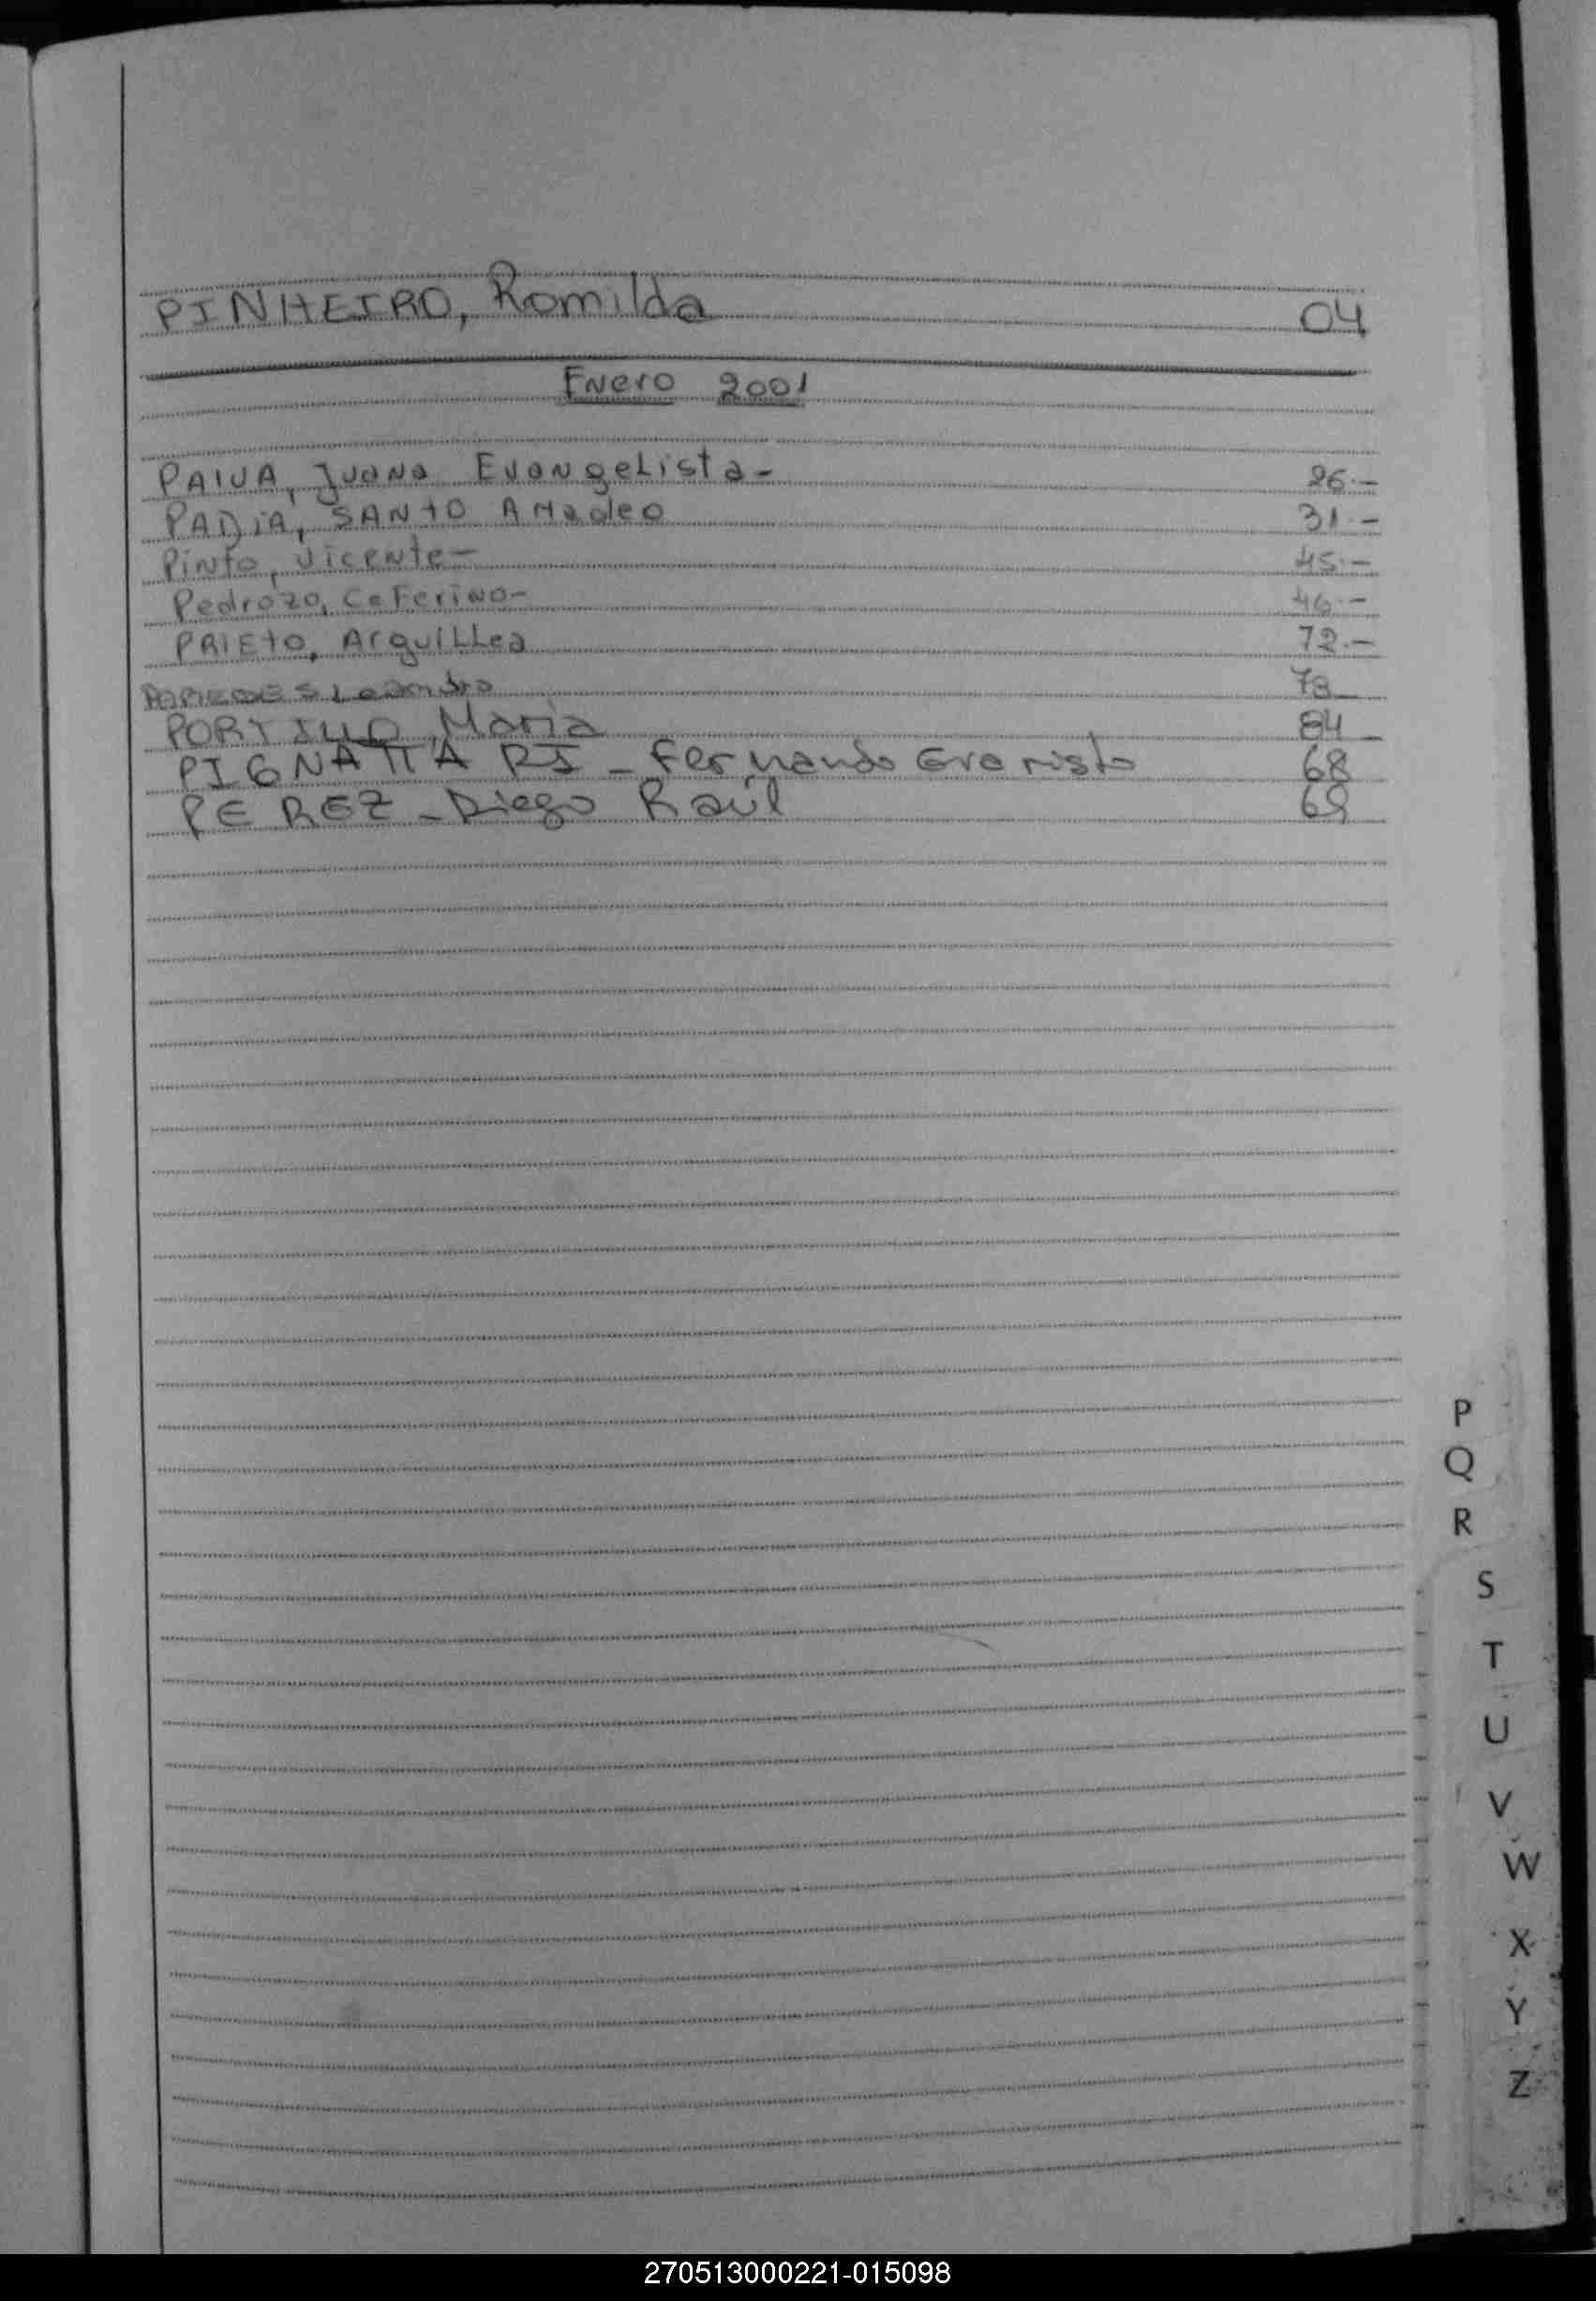 PINHEIRO, Romilda 04
Enero 2001
PAIVA, Juana Evangelista- 26.-
PADIA, SANTO AMadeo 31.-
Pinto, Vicente- 45.-
Pedrozo, Ceferino- 46.-
PRIETO, ArquiLLea 72.-
PAREDES Leandro 78
PORTILLO, Maria 84
PIGNATTA RI - Fernando Evaristo 68
PEREZ - Diego Raúl 69
P
Q
R
S
T
U
V
W
X
Y
Z
270513000221-015098